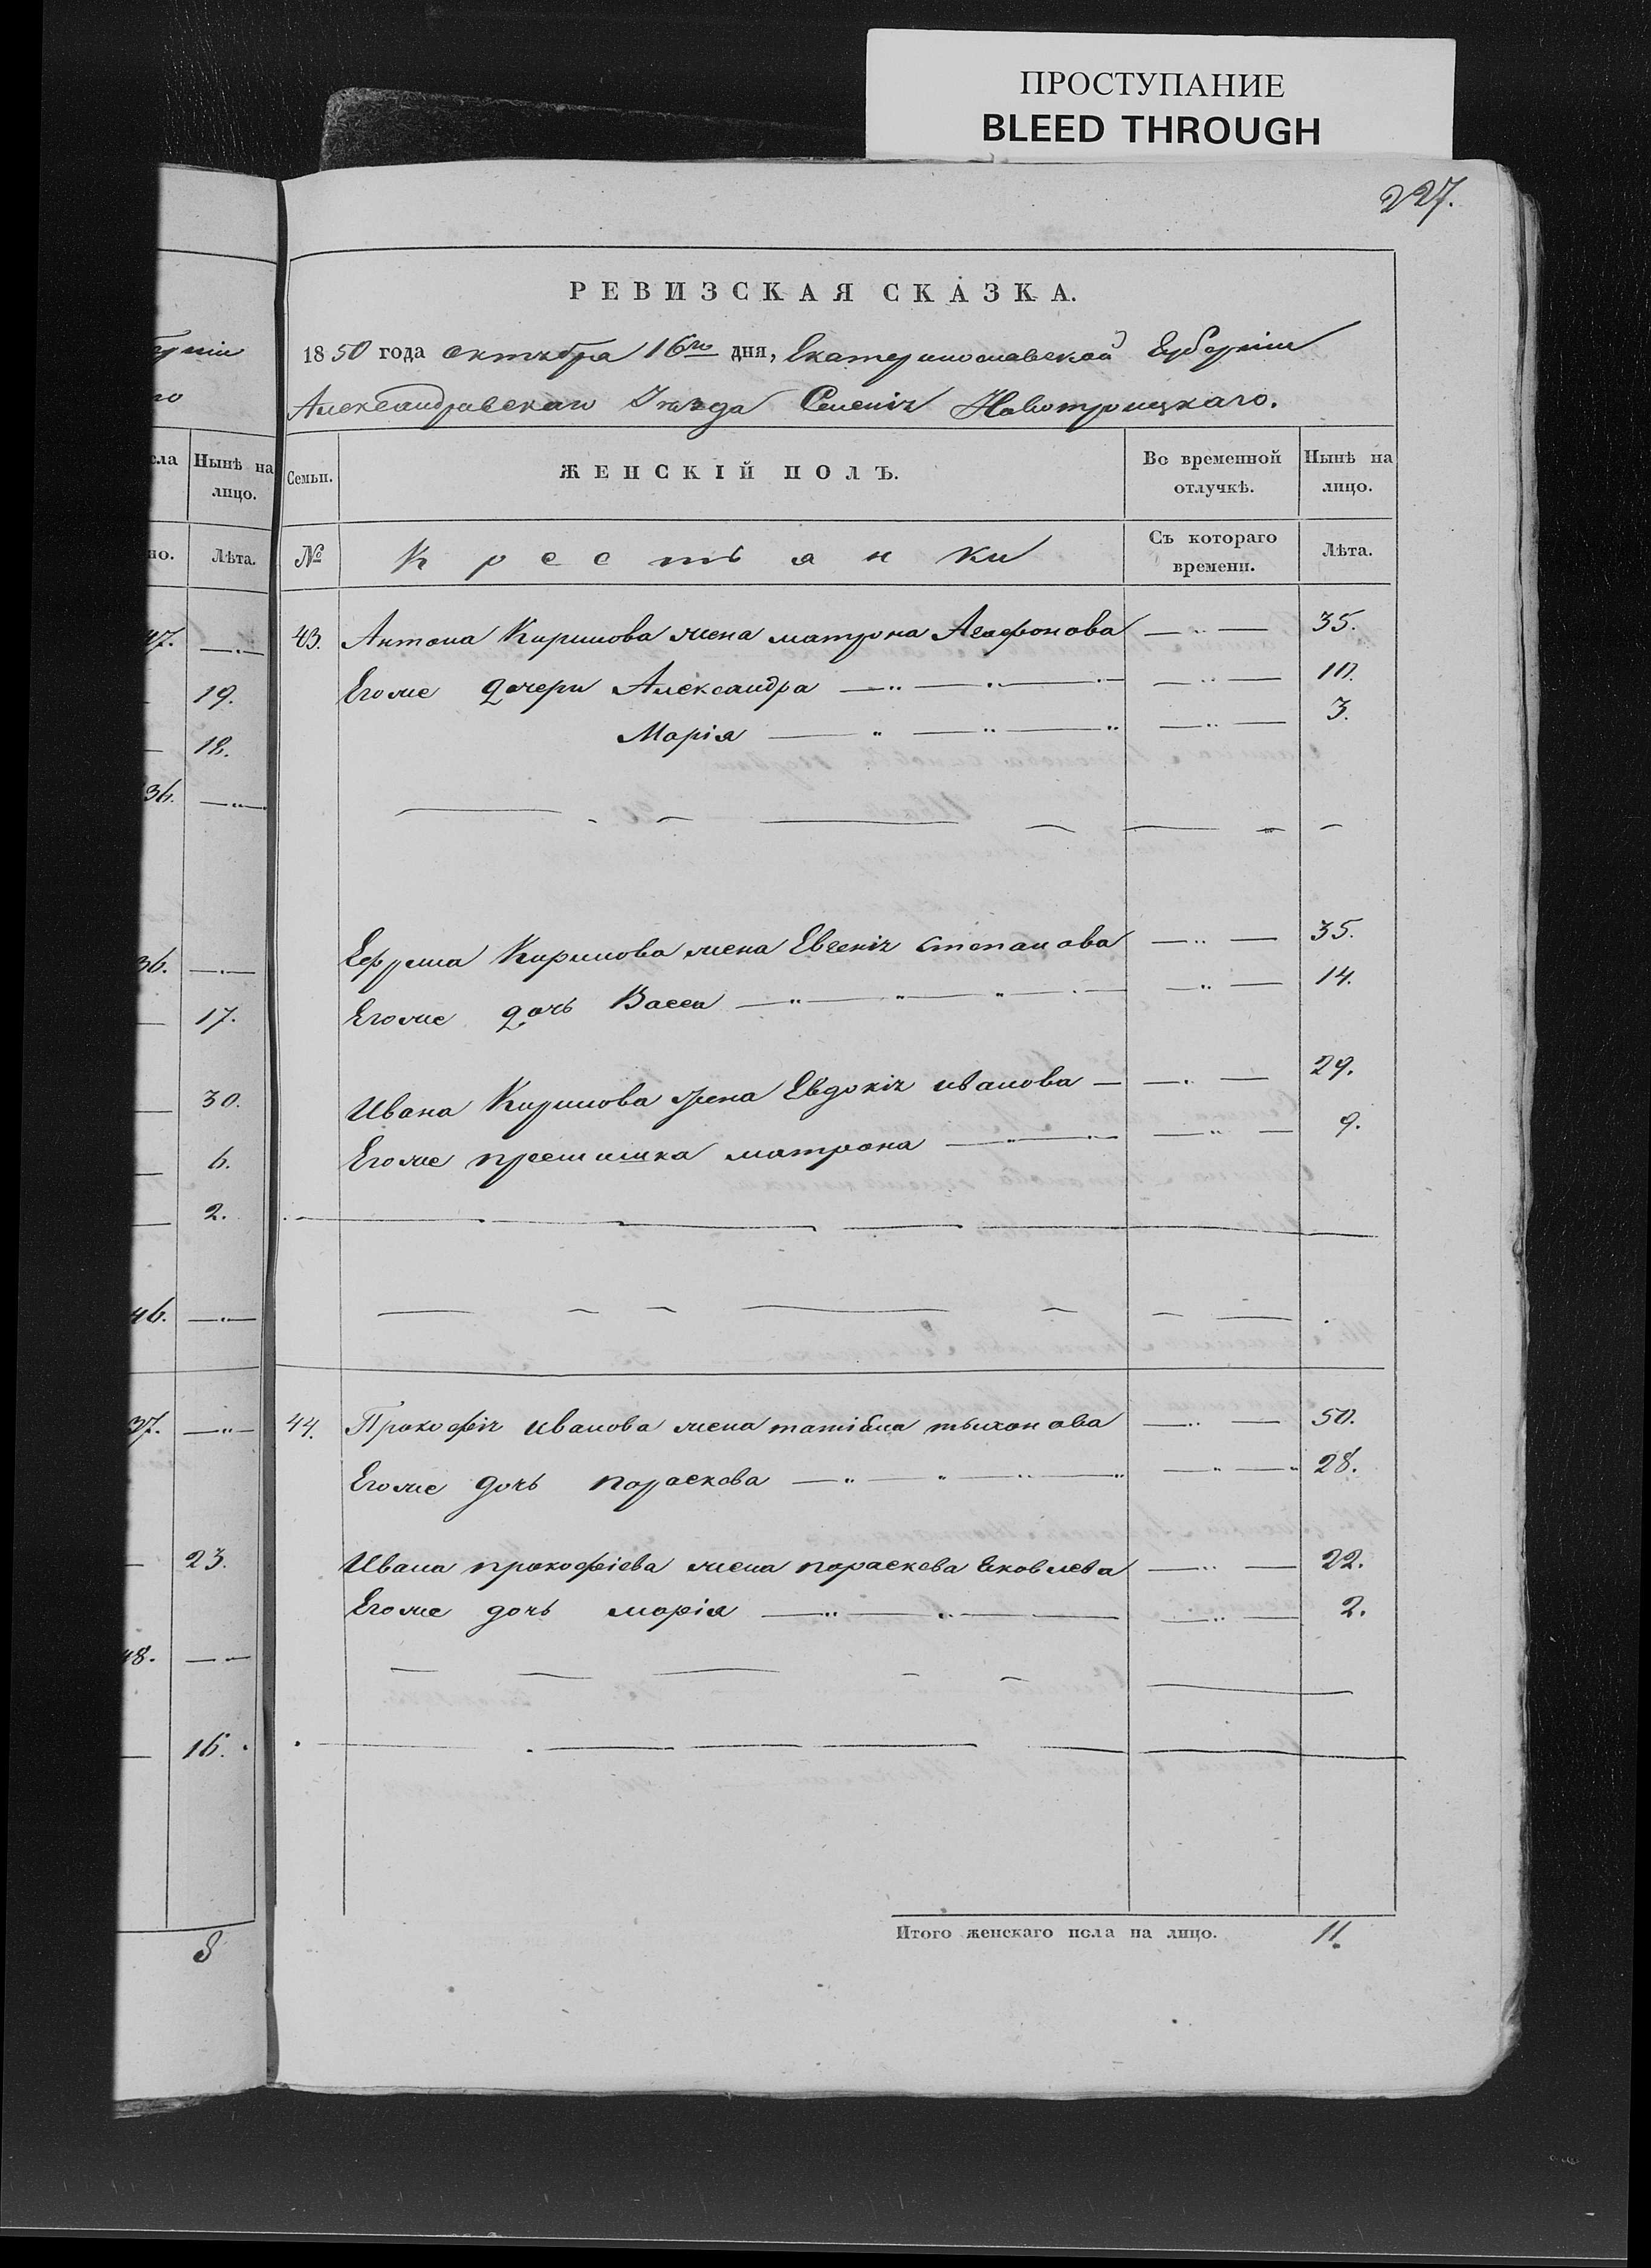 ПРОСТУПАНИЕ
BLEED THROUGH
227.
РЕВИЗСКАЯ СКАЗКА.
1850 года октября 16го дня, Екатеринославской Губернии
Александровскаго Уезда Селенія Новотроицкаго.
сла Нынѣ на лицо.
Семьи. ЖЕНСКІЙ ПОЛЪ. Во временной отлучкѣ. Нынѣ на лицо.
но. Лѣта.
№ Крестьянки Съ котораго времени. Лѣта.
47.
19.
18.
36.
36.
17.
30.
6.
2.
46.
37.
23.
48.
16.
8
43. Антона Кирилова жена матрона Агафонова 35.
Егоже дочери Александра 10.
Марія 3.
Ефрима Кирилова жена Евгенія степанова 35.
Егоже дочь Васса 14.
Ивана Кирилова жена Евдокія иванова 29.
Егоже матрона 9.
44. Прокофія иванова жена татіяна тыхонова 50.
Егоже дочь параскова 28.
Ивана прокофіева жена параскева Яковлева 22.
Егоже дочь марія 2.
Итого женскаго пола на лицо. 11.